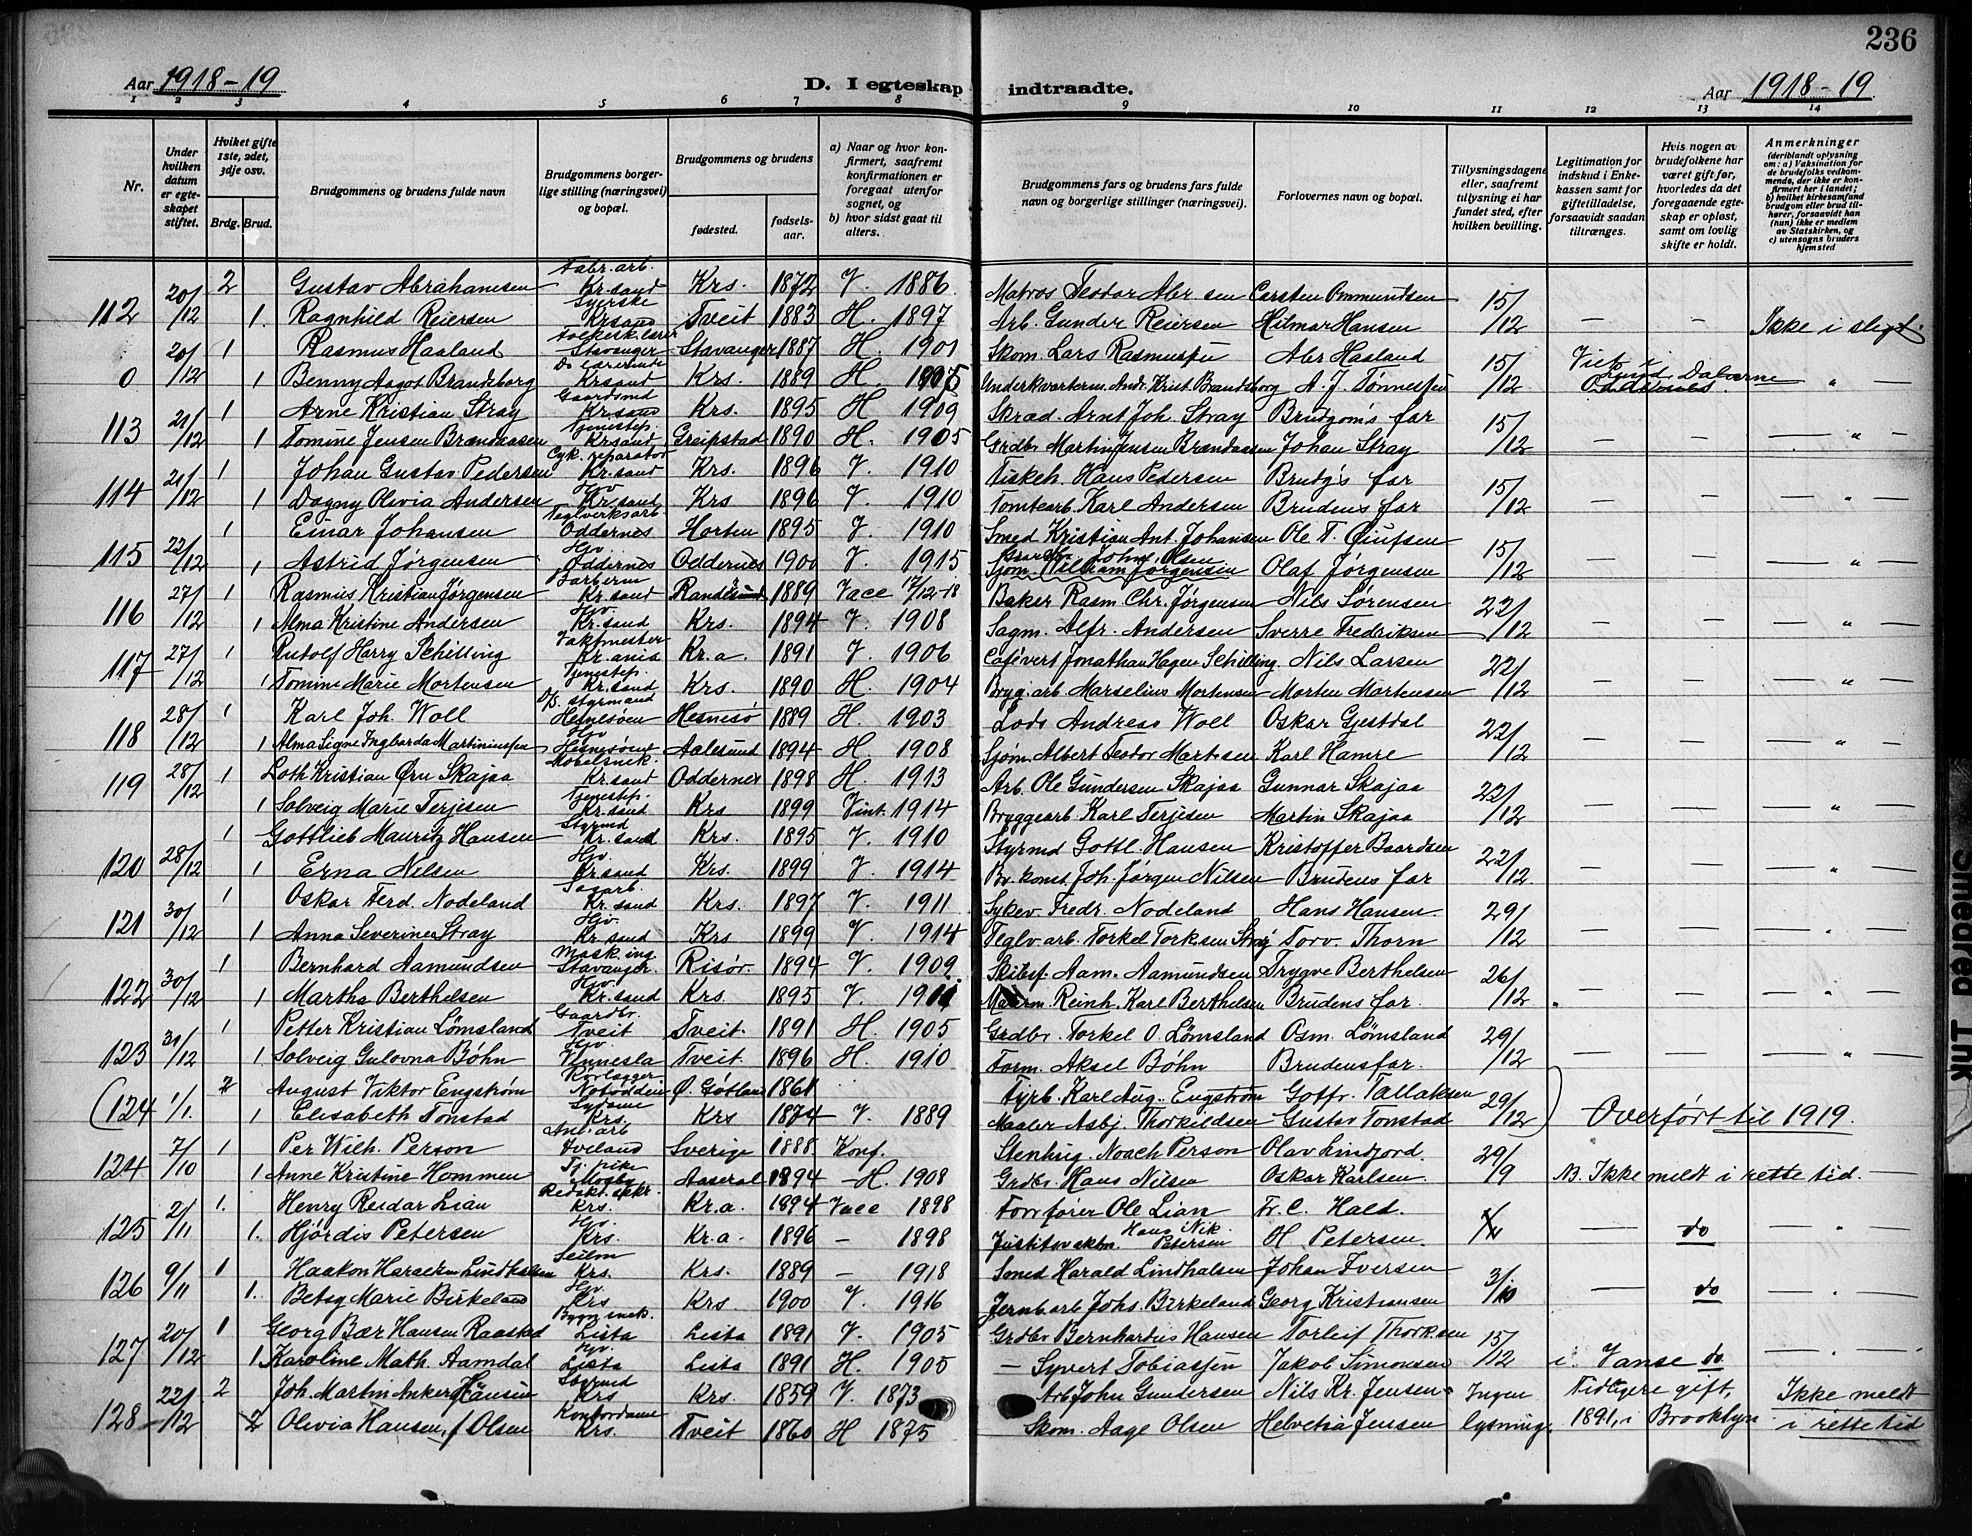 236
Aar 1918-19 D. I egteskap indtraadte. Aar 1918-19
1 2 3 4 5 6 7 8 9 10 11 12 13 14
Nr.
Under hvilken datum er egteskapet stiftet.
Hviket gifte 1ste, 2det, 3dje osv.
Brdg. Brud.
Brudgommens og brudens fulde navn
Brudgommens borgerlige stilling (næringsvei) og bopæl.
Brudgommens og brudens
fødested.
fødselsaar.
a) Naar og hvor konfirmert, saafremt konfirmationen er foregaat utenfor sognet, og
b) hvor sidst gaat til alters.
Brudgommens fars og brudens fars fulde navn og borgerlige stillinger (næringsvei).
Forlovernes navn og bopæl.
Tillysningsdagene eller, saafremt tillysning ei har fundet sted, efter hvilken bevilling.
Legitimation for indskud i Enkekassen samt for giftetilladelse, forsaavidt saadan tiltrænges.
Hvis nogen av brudefolkene har været gift før, hvorledes da det foregaaende egteskap er opløst, samt om lovlig skifte er holdt.
Anmerkninger
(deriblandt oplysning om: a) Vaksination for de brudefolks vedkommende, der ikke er konfirmert her i landet; b) hvilket kirkesamfund brudgom eller brud tilhører, forsaavidt han (hun) ikke er medlem av Statskirken, og c) utensogns bruders hjemsted
112 20/12 2 Gustav Abrahamsen Fabr. arb. Kr.sand Krs. 1872 V. 1886 Matros Teodor Abr.sen Carsten Ommundsen 15/12
1. Ragnhild Reiersen Syerske Krsand Tveit 1883 H. 1897 Arb. Gunder Reiersen Hilmar Hansen — — Ikke i slegt.
0 20/12 1 Rasmus Haaland Stavanger Stavanger 1887 H. 1901 Skom. Lars Rasmussen Abr Haaland 15/12 Viet i
1 Benny Aagot Brandsborg Krsand Krs. 1889 H. 1905 Underkvarterm. Andr. Krist. Brandsborg A. J. Tønnessen Oddernes "
113 21/12 1 Arne Kristian Stray Gaardsmd Krsand Krs. 1895 H 1909 Skræd. Arnt Joh. Stray Brudgom's far 15/12
1 Tomine Jensen Brændaasen Tjenestep. Krsand Greipstad 1890 H. 1905 Grdbr Martin Jensen Brændaasen Johan Stray — — — " —
114 21/12 1 Johan Gustav Pedersen Cyk. reparatør Kr.sand Krs. 1896 V. 1910 Fiskeh. Hans Pedersen Brudg's far 15/12
1 Dagny Olivia Andersen Hjv Kr.sand Krs 1896 V. 1910 Tomtearb. Karl Andersen Brudens far — — — " —
115 22/12 1 Einar Johansen Teglverksarb. Oddernes Horten 1895 V. 1910 Smed Kristian Ant. Johansen 15/12
1 Astrid Jørgensen Hjv. Oddernes Oddernes 1900 V. 1915 John Olsen Sjøm. William Jørgensen Olaf Jørgensen — — — " —
116 27/12 1 Rasmus Kristian Jørgensen Barberm Kr.sand Randesund 1889 Vacc 17/12-18 Baker Rasm. Chr. Jørgensen Nils Sørensen 22/12
1 Alma Kristine Andersen Hjv. Kr.sand Krs. 1894 V. 1908 Sagm. Alfr. Andersen Sverre Fredriksen — — — " —
117 27/12 1 Rudolf Harry Schilling Vaktmester Kr.ania Kr.a. 1891 V. 1906 Cafévert Jonathan Hagen Schilling Nils Larsen 22/12
1 Tomine Marie Mortensen Tjenestep. Kr.sand Krs. 1890 H. 1904 Bryg.arb Marselius Mortensen Morten Mortensen — — — " —
118 28/12 1 Karl Joh. Woll styrmand Hesnesøen Hesnesø 1889 H. 1903 Lods Andreas Woll Oskar Gjestdal 22/12
1 Alma Signe Ingbarda Martiniussen Hjv Hesnesøen Aalesund 1894 H. 1908 Sjøm. Albert Teodor Mart.sen Karl Hamre — — — " —
119 28/12 1 Loth Kristian Ørn Skajaa Møbelsnek. Kr.sand Oddernes 1898 H. 1913 Arb. Ole Gundersen Skajaa Gunnar Skajaa 22/12
1 Solveig Marie Terjesen Tjenestep. Kr.sand Krs 1899 Vint. 1914 Bryggearb. Karl Terjesen Martin Skajaa — — — " —
120 28/12 1 Gottlieb Mauritz Hansen Styrmd Kr.sand Krs. 1895 V. 1910 Styrmd Gottl. Hansen Kristoffer Baardsen 22/12
1 Erna Nilsen Hjv. Kr.sand Krs. 1899 V. 1914 Bv. konst. Joh. Jørgen Nilsen Brudens far — — — " —
121 30/12 1 Oskar Ferd. Nodeland Kr.sand Krs. 1897 V. 1911 Sykev Fredr. Nodeland Hans Hansen 29/12
1 Anna Severine Stray Hjv. Kr.sand Krs 1899 V. 1914 Teglv.arb. Torkel Tork.sen Stray Torv. Thorn — — — " —
122 30/12 1 Bernhard Aamundsen Mask.ing Stavanger. Risør. 1894 V. 1909 Skibsf. Aam. Aamundsen Trygve Berthelsen 26/12
1 Martha Berthelsen Hjv. Kr.sand Krs. 1895 V. 1911 Reinh. Karl Berthelsen Brudens far — — — " —
123 31/12 1 Petter Kristian Lømsland Gaardbr. Tveit Tveit. 1891 H. 1905 Grdbr. Torkel O. Lømsland Osm. Lømsland 29/12
1 Solveig Gulovna Bøhn Hjv. Vennesla Tveit. 1896 H. 1910 Form. Aksel Bøhn Brudens far. — — — " —
(124 1/1. 2 August Viktor Engstrøm Rørlægger Notodden Ø. Gøtland 1861 Fyrb. Karl Aug. Engstrøm Gottfr. Tallaksen 29/12)
1 Elisabeth Tonstad Syerske Krs. Krs 1874 V. 1889 Maaler Asbj. Thorkildsen Gustav Tonstad Overført til 1919.
124 7/10 1 Per Wilh. Person Anl. arb Iveland Sverige 1888. Konf. Stenhug. Noach Person Olav Lindjord. 29/9
1 Anne Kristine Hommen Tj. pike Aaseral 1894 – H. 1908 Grdbr Hans Nilsen Oskar Karlsen. N. Ikke meldt i rette tid.
125 2/11 1. Henry Reidar Lian Krs. Kr.a. 1894 Vacc 1898 Forr.fører Ole Lian Fr. C. Hald.
1. Hjørdis Petersen Hjv. Krs. Kr.a. 1896 – 1898 Hans Nik. Petersen H Petersen. — do — " —
126 9/11 1 Haakon Lindhalsen Krs. Krs. 1889 – 1918 Smed Harald Lindhalsen Johan Iversen 3/10
1. Betsy Marie Birkeland Hjv. Krs Krs. 1900 V. 1916 Jernb.arb Johs. Birkeland Georg Kristiansen — do — " —
127 20/12 1 Georg Bær Hansen Raastad Bygn.snek. Lista Lista 1891 V. 1905 Grdbr Bernhardus Hansen Torleif Thork.sen 15/12
1 Karoline Math. Aamdal Hjv. Lista Lista 1891 H. 1905 — Syvert Tobiassen Jakob Simonsen i Vanse do — " —
128 22/12 2 Joh. Martin Anker Hansen Krs Krs. 1859 V. 1873 Arb John Gundersen Nils Kr. Jensen Ingen Tidligere gift, Ikke meldt
2 Olivia Hansen, f Olsen Krs. Tveit 1860 H 1875 Skom. Aage Olsen Helvetia Jensen lysning. 1891, i Brooklyn i rette tid
Smeared Ink